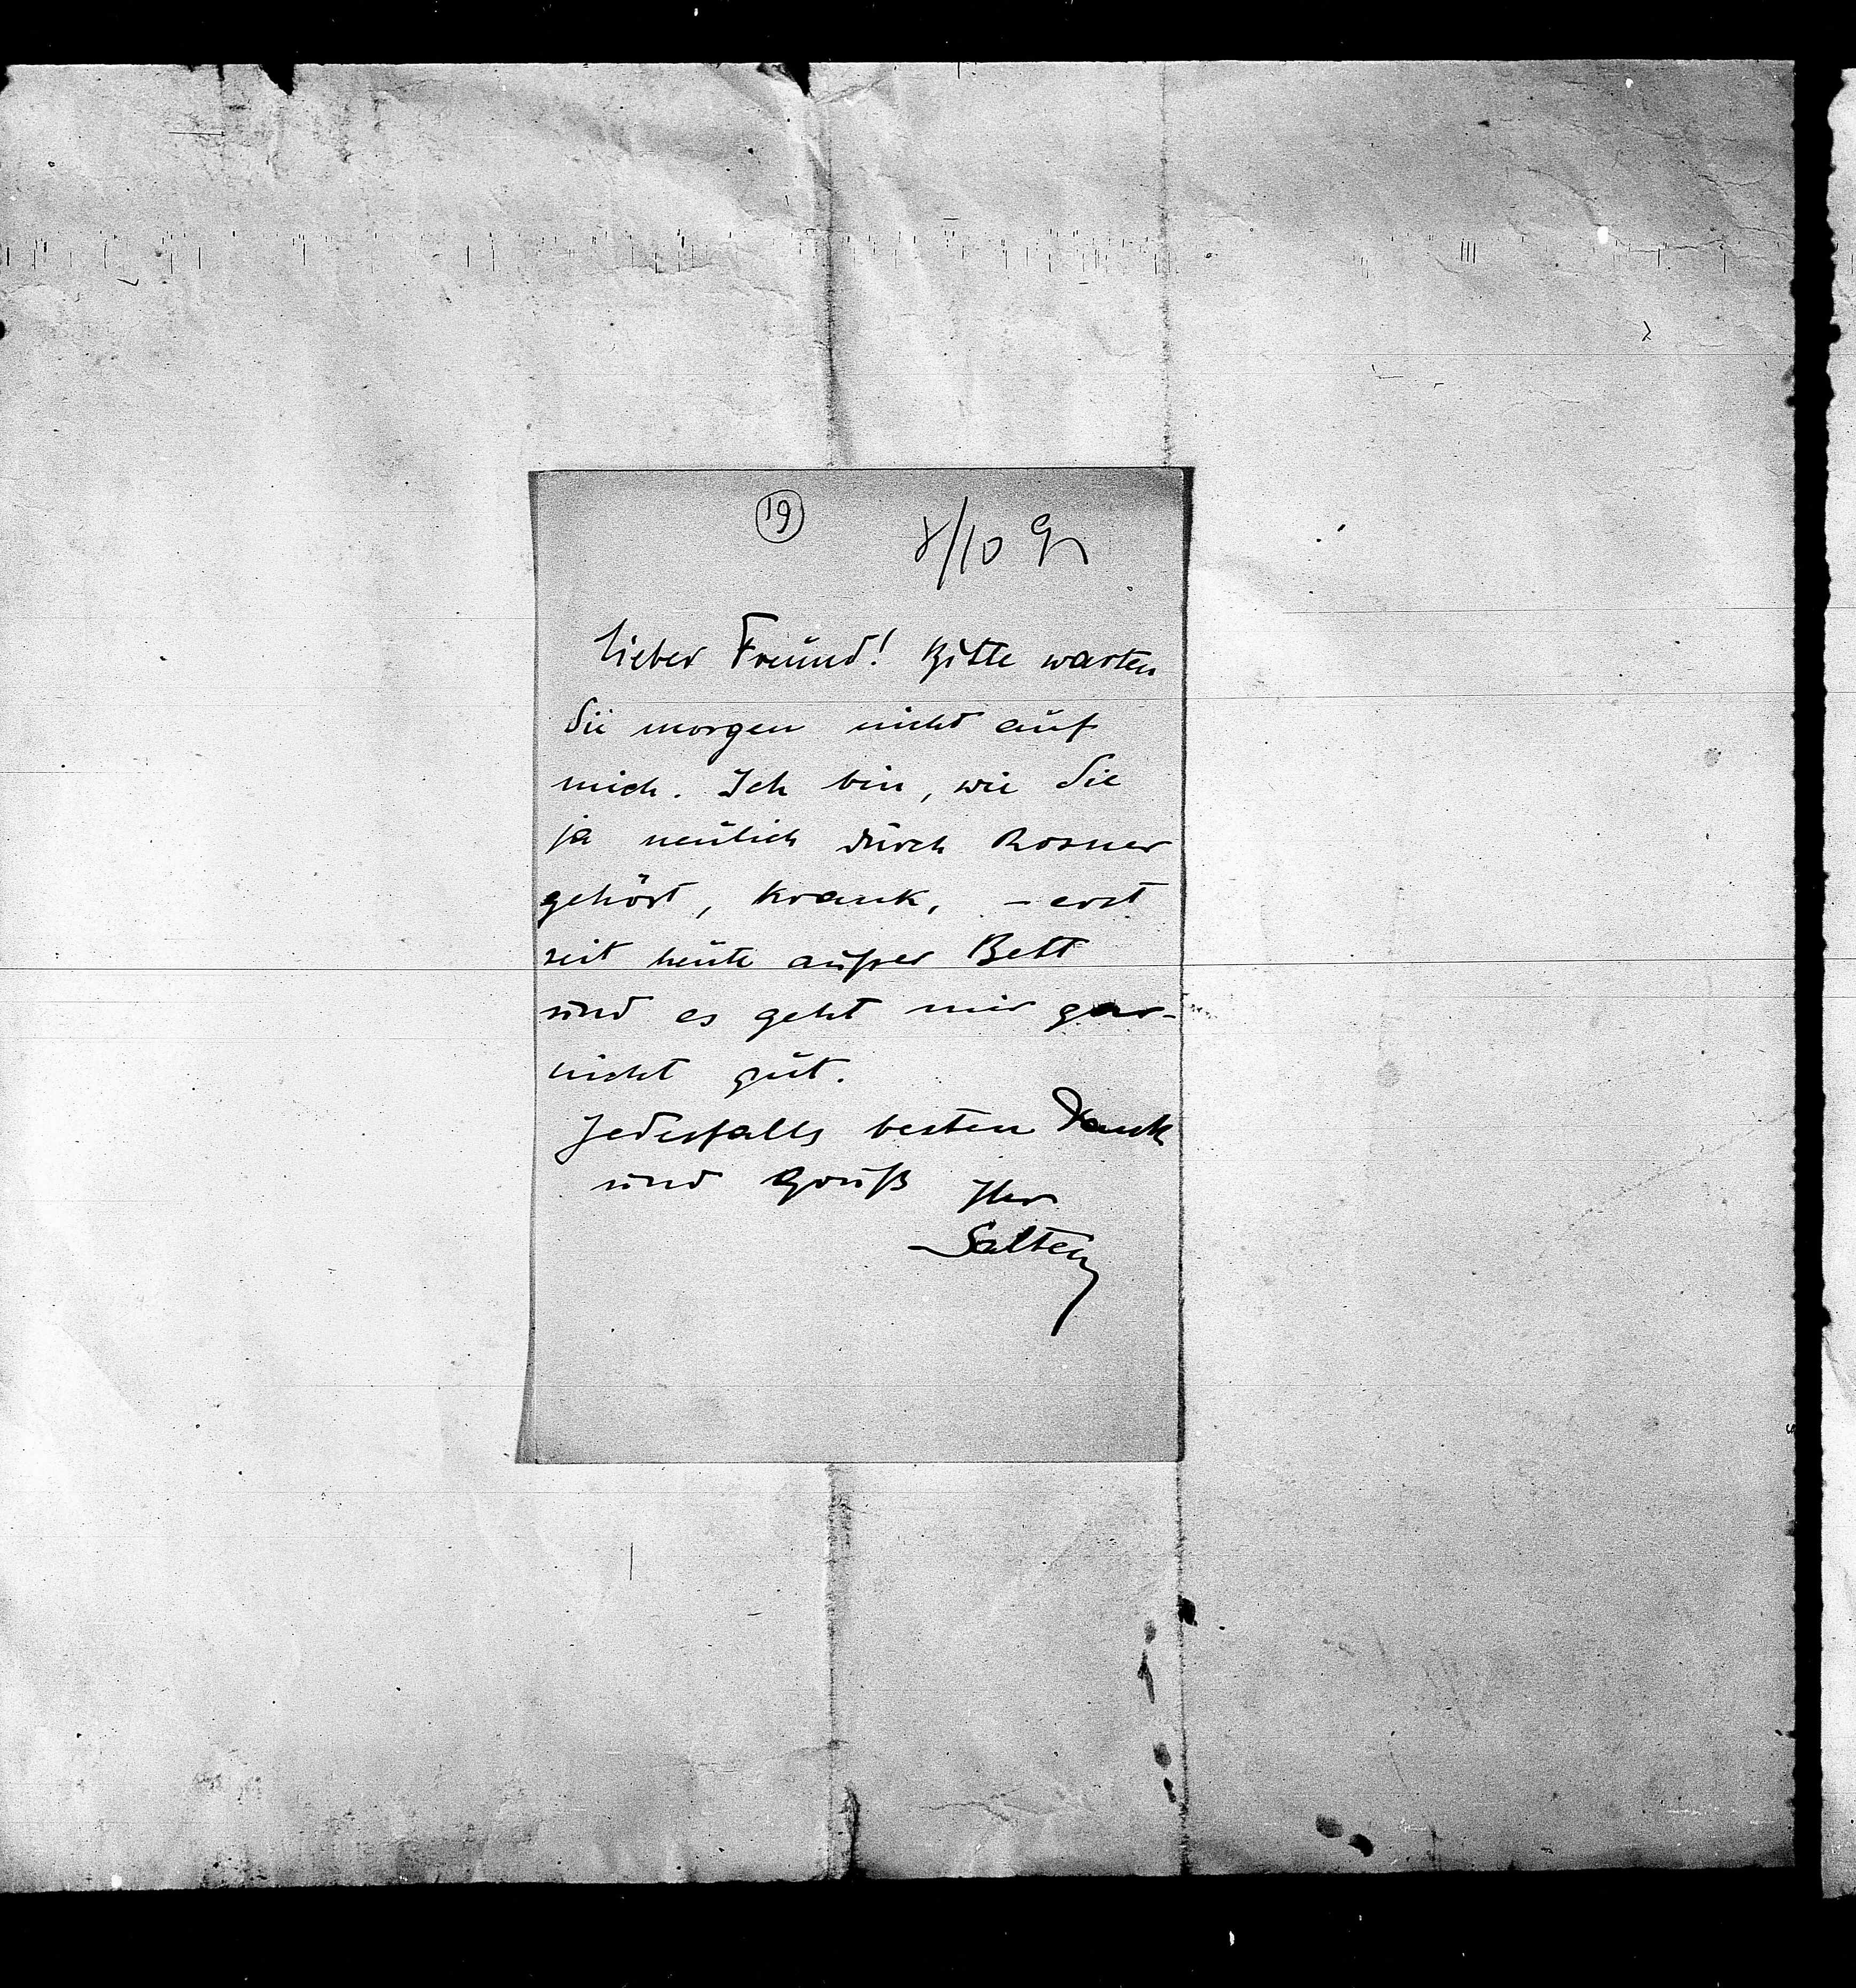 19
8/10 91
Lieber Freund! Bitte warten
Sie morgen nicht auf
mich. Ich bin, wie Sie
ja neulich durch Rosner
gehört, krank, – erst
seit heute außer Bett
und es geht mir gar-
nicht gut.
Jedesfalls besten Dank
und Gruß Ihr
Salten